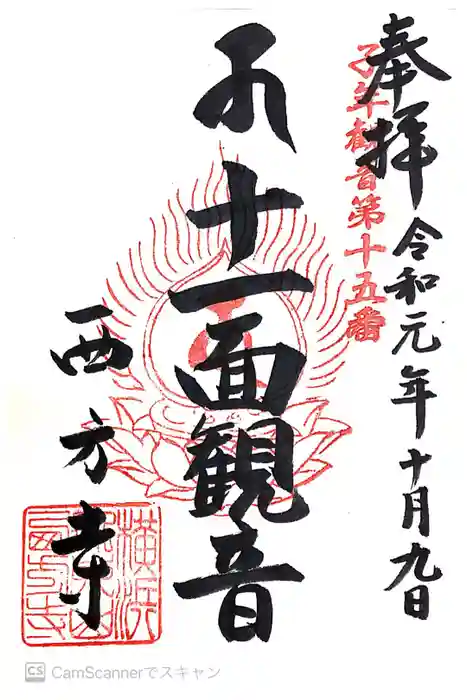 奉拝
令和元年十月九日
子年観音第十五番
十一面観音
西方寺
横浜
CS CamScannerでスキャン